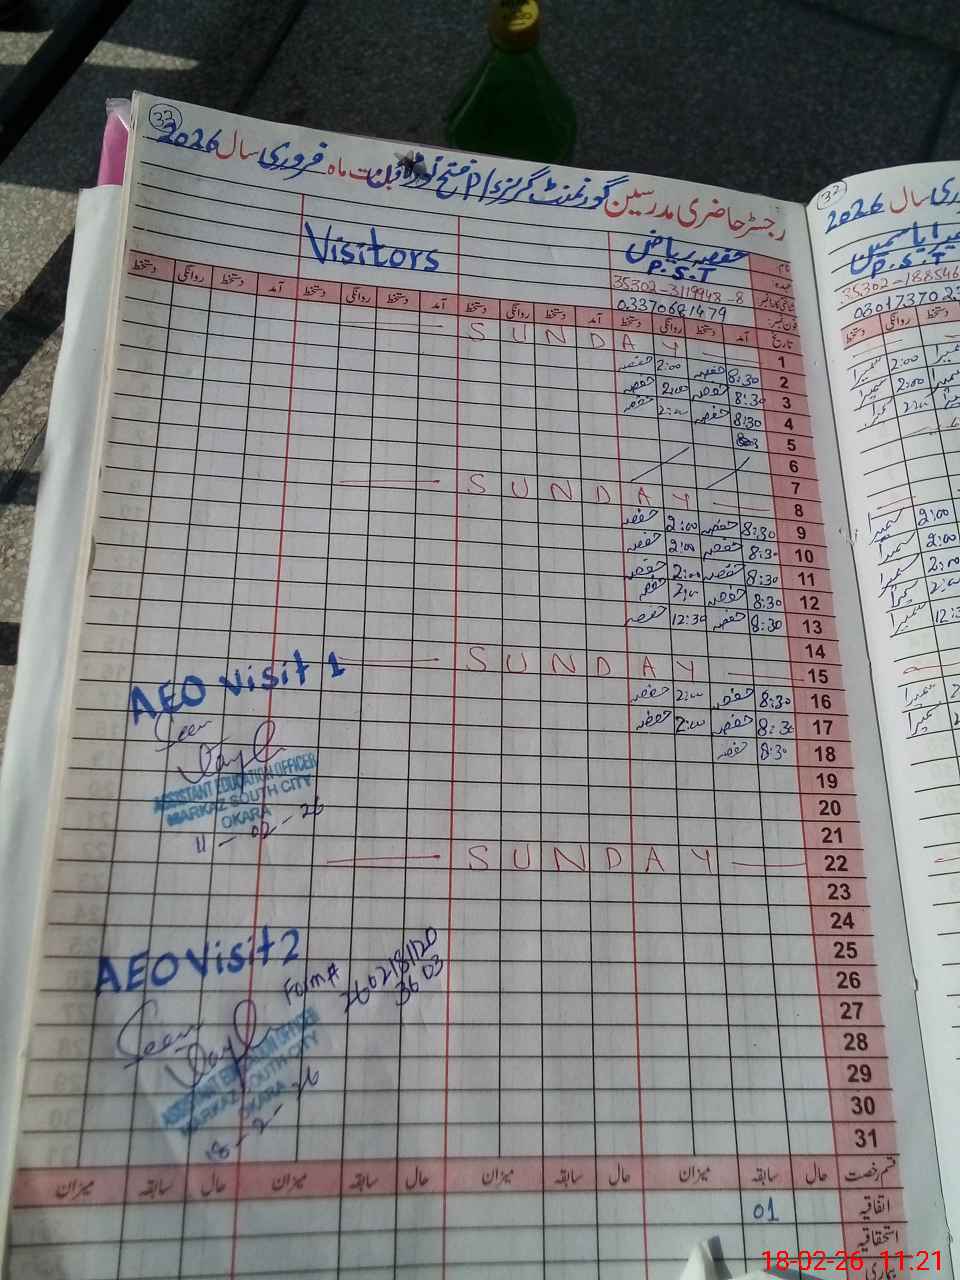 32
رجسٹر حاضری مدرسین گورنمنٹ گرلز P/S فتح پور بابت ماہ فروری سال 2026
Visitors
نام حفصہ ریاض
عہدہ P.S.T
شناختی کارڈ نمبر 35302-3119948-8
فون نمبر 03370681479
تاریخ آمد دستخط روانگی دستخط آمد دستخط روانگی دستخط آمد دستخط روانگی دستخط آمد دستخط روانگی دستخط
1 SUNDAY
2 8:30 حفصہ 2:00 حفصہ
3 8:30 حفصہ 2:00 حفصہ
4 8:30 حفصہ 2:00 حفصہ
5
6
7
8 SUNDAY
9 8:30 حفصہ 2:00 حفصہ
10 8:30 حفصہ 2:00 حفصہ
11 8:30 حفصہ 2:00 حفصہ
12 8:30 حفصہ 2:00 حفصہ
13 8:30 حفصہ 12:30 حفصہ
14
15 SUNDAY
16 8:30 حفصہ 2:00 حفصہ
17 8:30 حفصہ 2:00 حفصہ
18 8:30 حفصہ
19
20
21
22 SUNDAY
23
24
25
26
27
28
29
30
31
AEO visit 1
Seen
ASSISTANT EDUCATION OFFICER
MARKAZ SOUTH CITY
OKARA
11-02-26
AEO Visit 2
Form# 2602181120
3603
Seen
ASSISTANT EDUCATION OFFICER
MARKAZ SOUTH CITY
OKARA
18-2-26
قسم رخصت حال سابقہ میزان حال سابقہ میزان حال سابقہ میزان حال سابقہ میزان
اتفاقیہ 01
استحقاقیہ
بیماری
32
سال 2026
P.S.T
35302-188546
03017370
دستخط روانگی دستخط
سمیرا 2:00
سمیرا 2:00
سمیرا 2:00
سمیرا 2:00
سمیرا 2:00
سمیرا 2:00
سمیرا 2:00
سمیرا 12:3
سمیرا
سمیرا
18-02-26 11:21